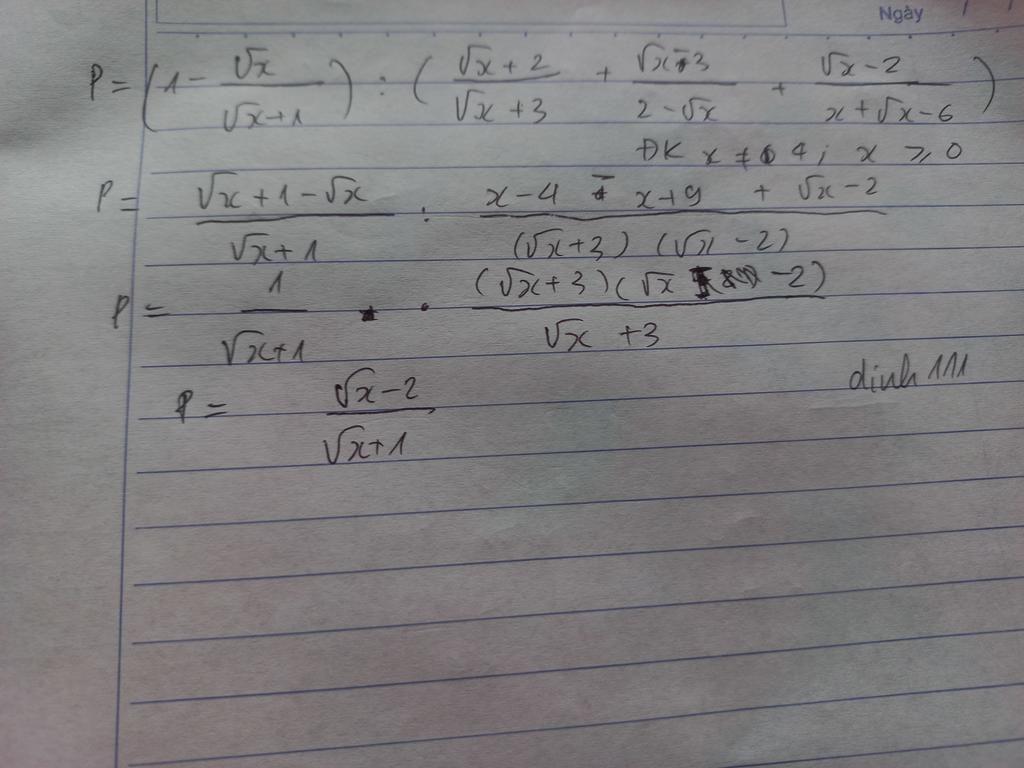 Ngày
P = (1 - √x / (√x+1)) : ((√x + 2) / (√x + 3) + (√x - 3) / (2 - √x) + (√x - 2) / (x + √x - 6))
ĐK x ≠ 4 ; x ≥ 0
P = (√x + 1 - √x) / (√x + 1) : (x - 4 - x + 9 + √x - 2) / ((√x + 3) (√x - 2))
P = 1 / (√x+1) . ((√x+3)(√x - 2)) / (√x + 3)
P = (√x - 2) / (√x+1)
dinh 111